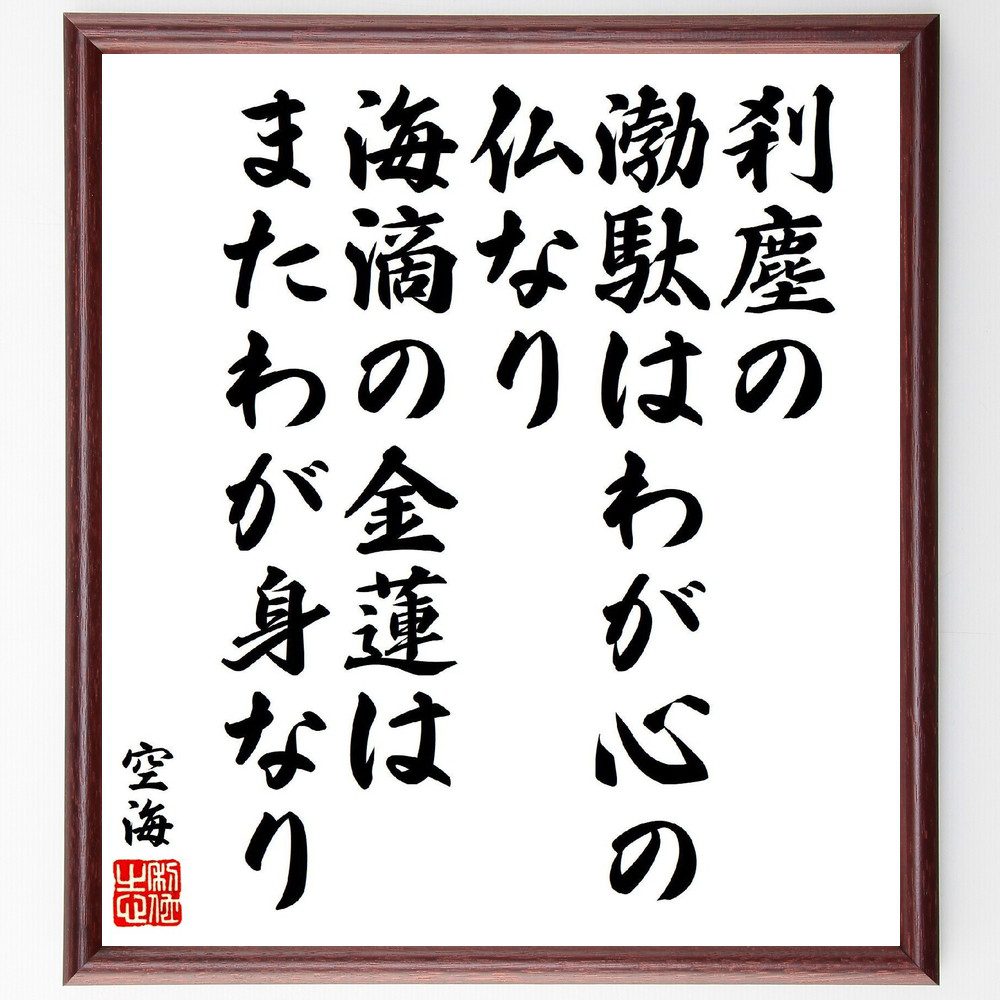 刹塵の
渤駄はわが心の
仏なり
海滴の金蓮は
またわが身なり
空海